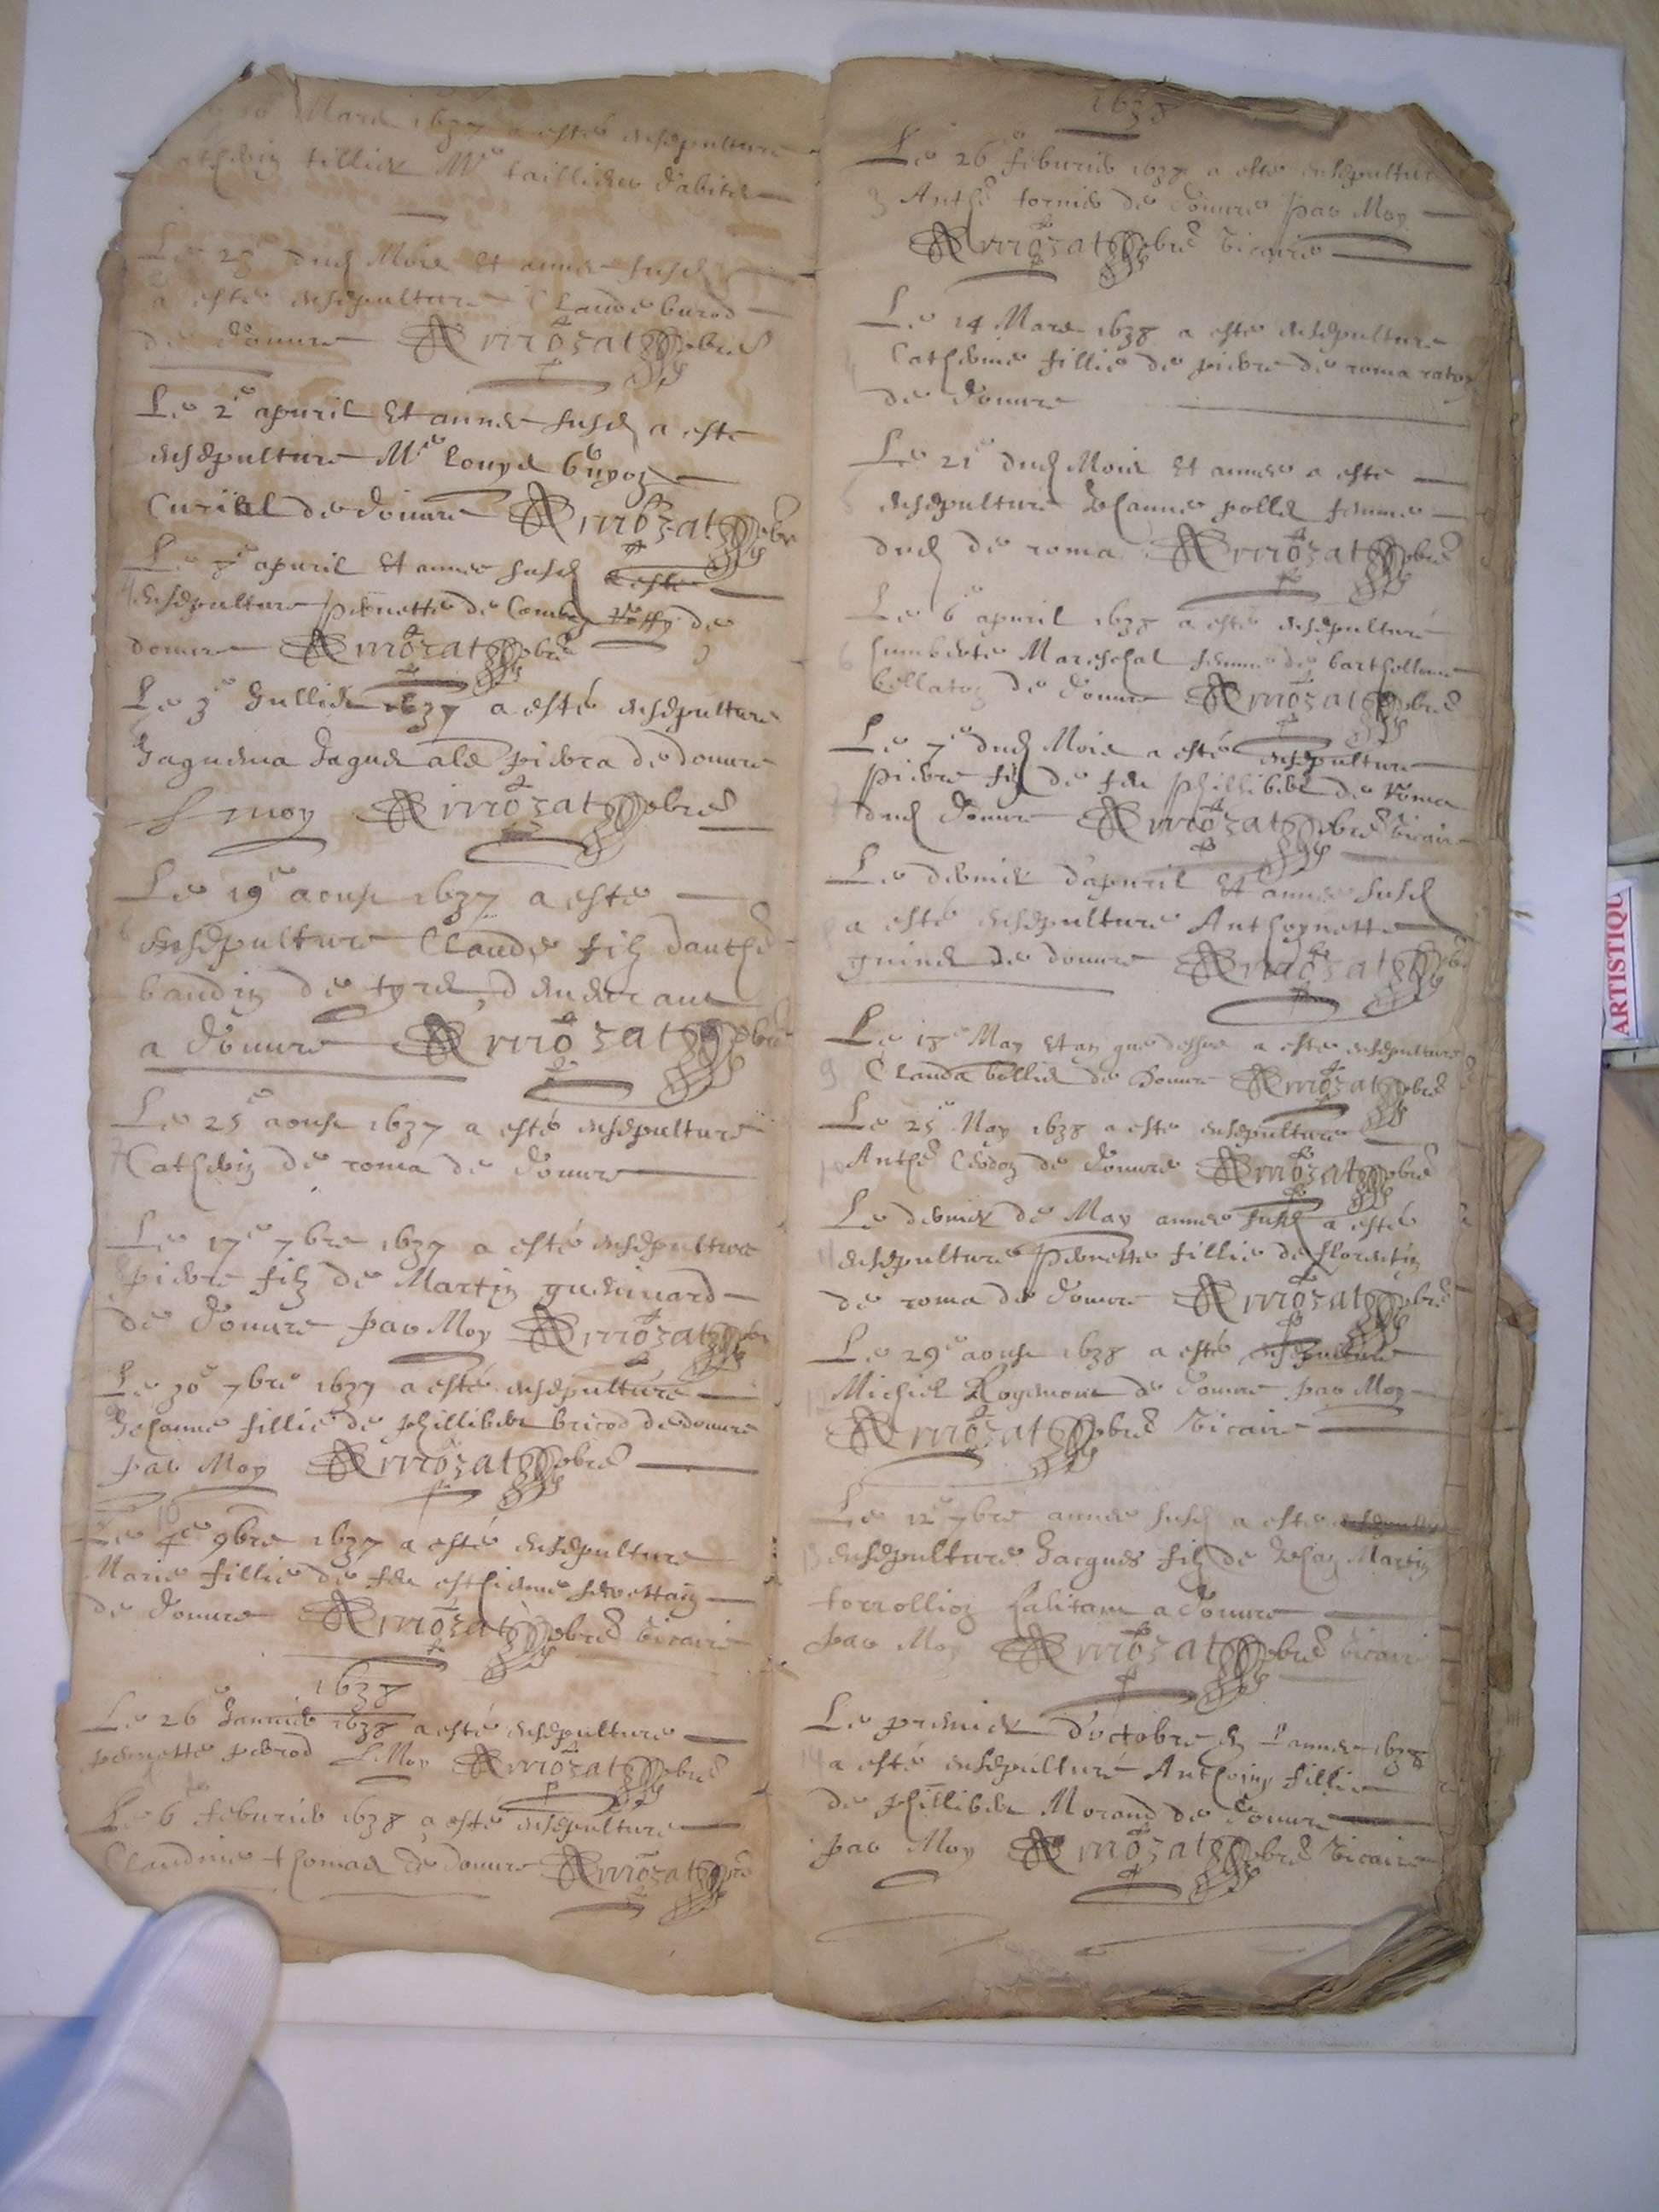 Mars 1637 a esté ensepulture
Cathelin tillier Me taillieur d'abitz
Le 25e dud Mois et annee susd
a esté ensepulture Claude burod
de douure Arrozat pbre
Le 2e apuril et annee susd a este
ensepulture Me Louys
Curial de douure Arrozat pbre
Le 8e apuril et annee susd a este
ensepulture pernette de Combe de
douure Arrozat pbre
Le 3e Jullier 1637 a esté ensepulture
Jaquema Jaquet als pierra de douure
p moy Arrozat pbre
Le 19e aoust 1637 a este
ensepulture Claude filz danthe
baudin de tyret, demeurant
a douure Arrozat pbre
Le 25e aoust 1637 a esté ensepulture
Catherin de roma de douure
Le 17e 7bre 1637 a esté ensepulture
pierre filz de Martin
de douure par Moy Arrozat pbre
Le 30e 7bre 1637 a esté ensepulture
Jehanne fillie de phillibert bricod de douure
par Moy Arrozat pbre
Le 4e 9bre 1637 a esté ensepulture
Marie fillie de feu esthienne
de douure Arrozat pbre vicaire
1638
Le 26e Januier 1638 a esté ensepulture
pernette perrod p Moy Arrozat pbre
Le 6e feburier 1638 a esté ensepulture
Claudine thomas de douure Arrozat pbre
1638
Le 26e feburier 1638 a este ensepulture
3 Anthe tornier de douure par Moy
Arrozat pbre vicaire
Le 14 Mars 1638 a este ensepulture
Catherine fillie de pierre de roma raton
de douure
Le 21e dud Mois et annee a este
5 ensepulture Jehanne pollet femme
dud de roma Arrozat pbre
Le 6e apuril 1638 a esté ensepulture
6 humberte Mareschal femme de bartholleme
bellaton de douure Arrozat pbre
Le 7e dud Mois a esté ensepulture
pierre filz de feu phillibert de roma
dud douure Arrozat pbre vicaire
Le dernier d'apuril et annee susd
a esté ensepulture Anthoynette
de douure Arrozat pbre
Le 18e May et an que dessus a este ensepulture
9 Clauda de douure Arrozat pbre
Le 25e May 1638 a este ensepulture
10 Anthe de douure Arrozat pbre
Le dernier de May annee susd a esté
11 ensepulture pernette fillie de florentin
de roma de douure Arrozat pbre
Le 29e aoust 1638 a esté ensepulture
Michel Rogemont de douure par Moy
Arrozat pbre vicaire
Le 12e 7bre annee susd a este
13 ensepulture Jacques filz de Jehan Martin
torrollion habitant a douure
par Moy Arrozat pbre vicaire
Le premier d'octobre annee 1638
14 a esté ensepulturé Anthoine fillie
de phillibert Morand de douure
par Moy Arrozat pbre vicaire
ARTISTIQU